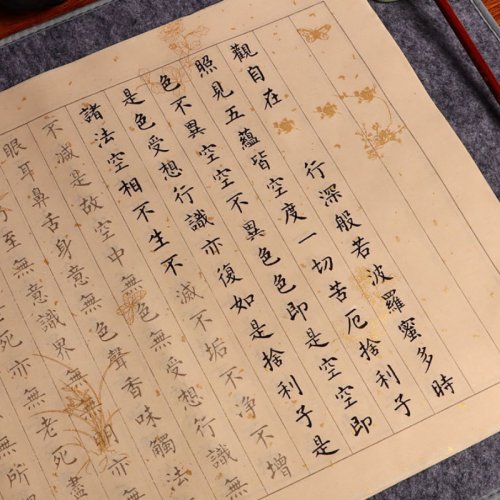 觀自在 行深般若波羅蜜多時
照見五蘊皆空度一切苦厄捨利子
色不異空空不異色色即是空空即
是色受想行識亦復如是捨利子是
諸法空相不生不滅不垢不淨不增
不減是故空中無色無受想行識
眼耳鼻舌身意無色聲香味觸法
至無意識界無無明亦
死亦無老死盡
無所